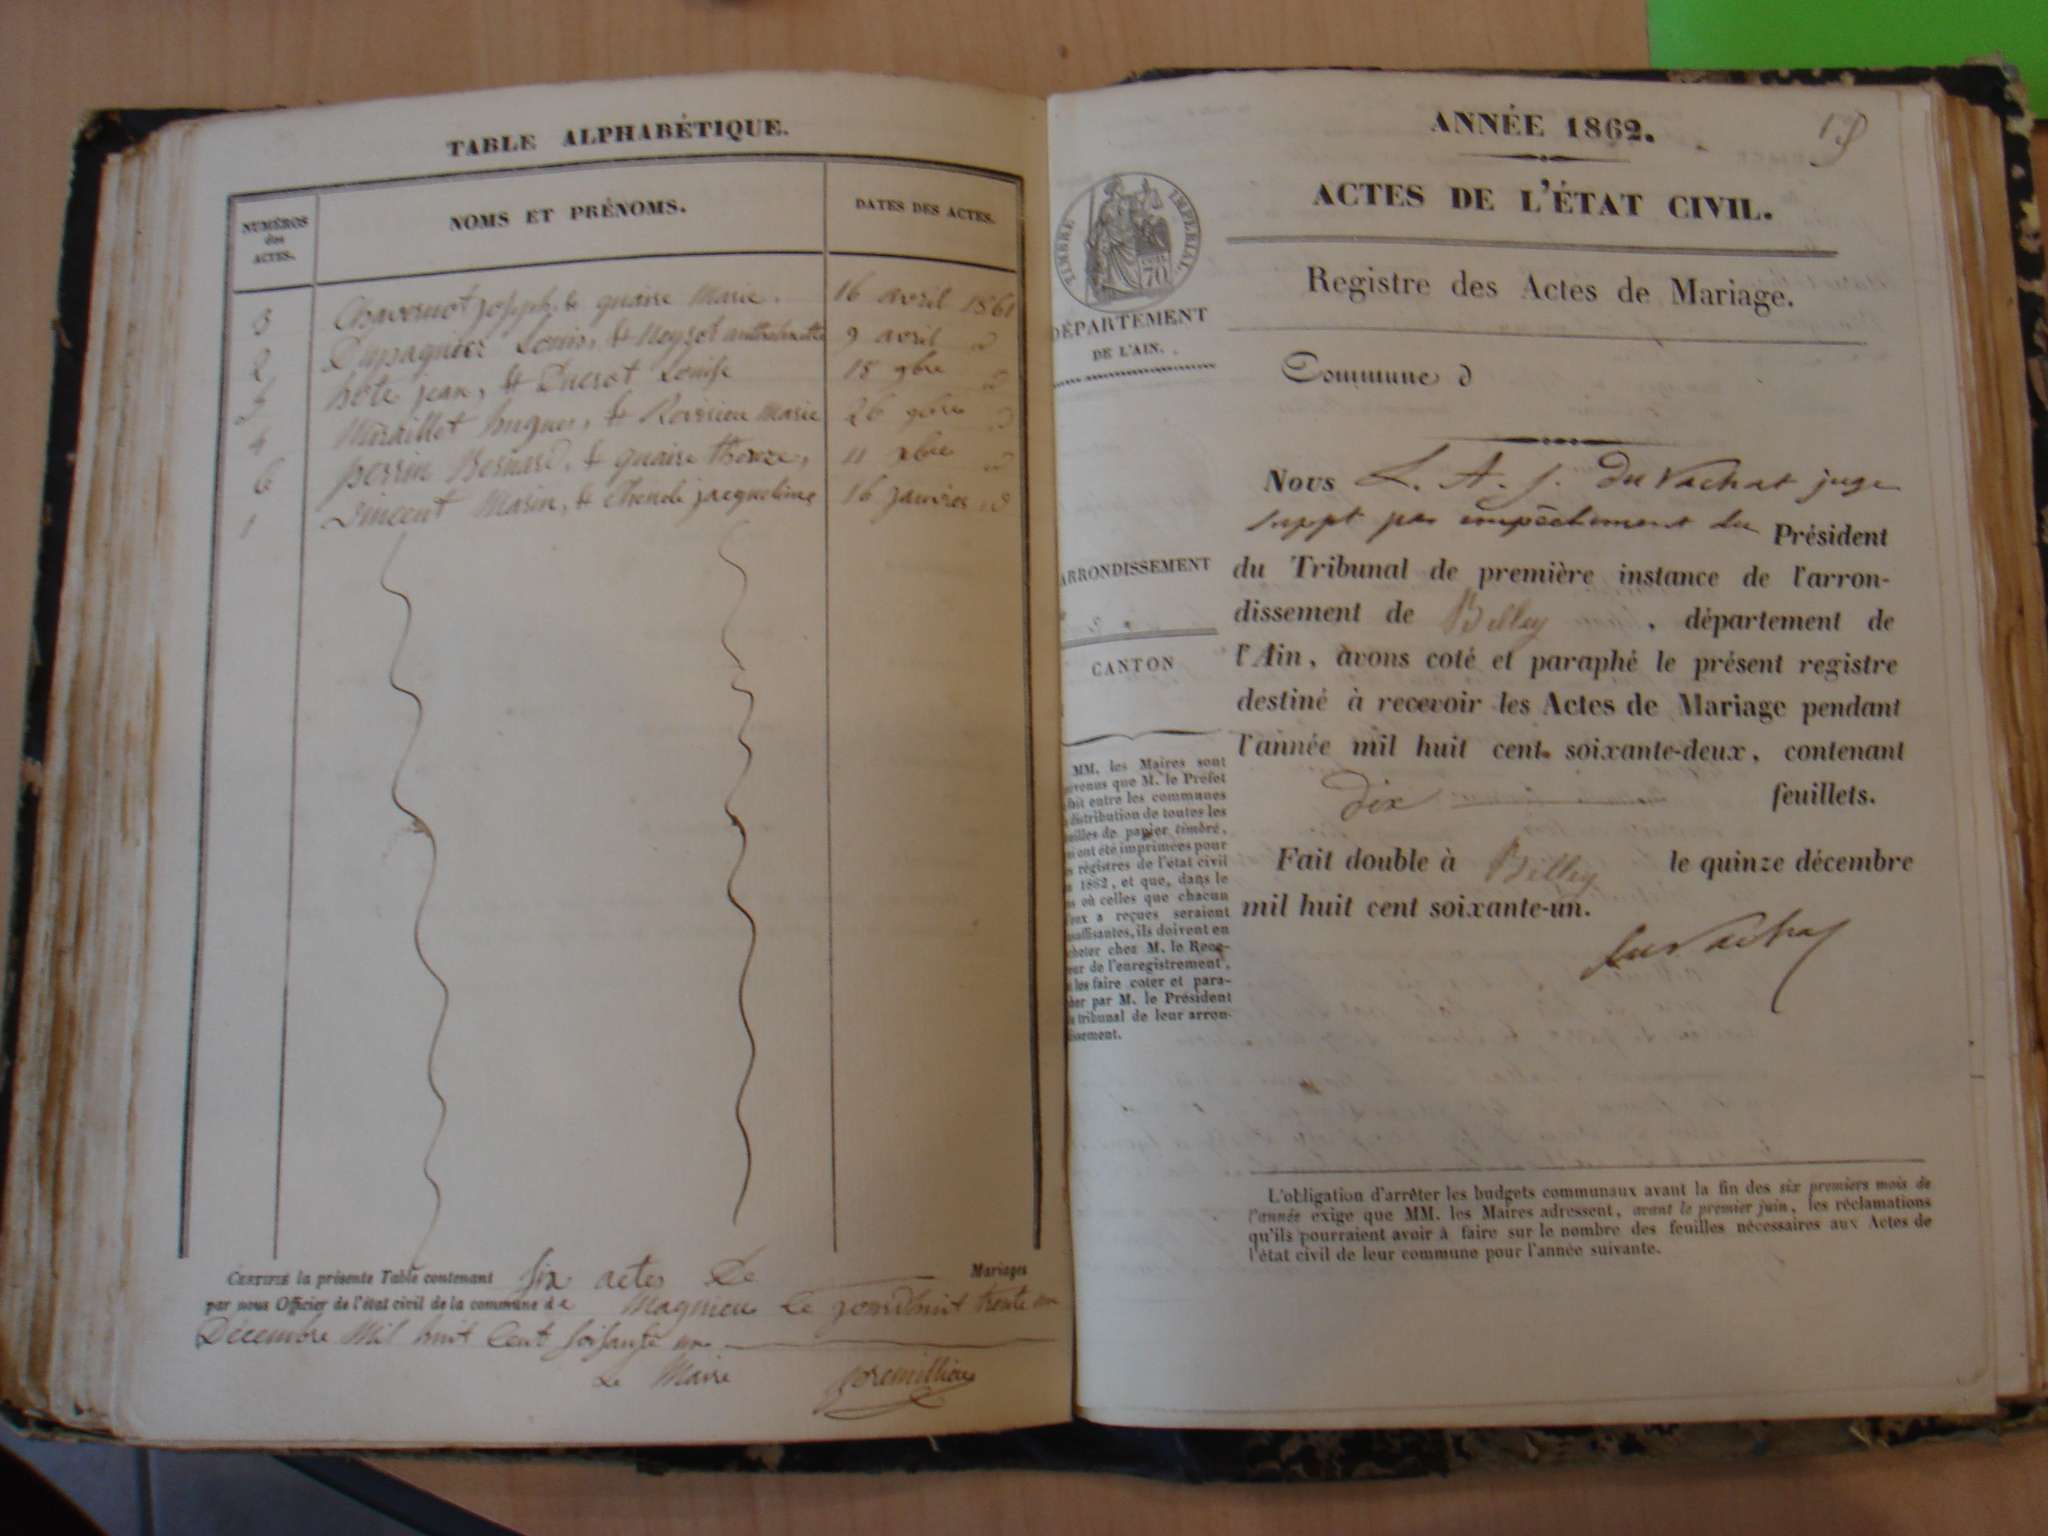 TABLE ALPHABÉTIQUE.
NUMÉROS
des
ACTES.
NOMS ET PRÉNOMS.
DATES DES ACTES.
3 Chavernot joseph, & quaire Marie. 16 avril 1861
2 Louis, & 9 avril id
5 hôte jean, & Ducrot Louise 18 9bre id
4 Miraillet hugues, & Roissieu Marie 26 9bre id
6 perrin Bernard, & quaire 11 xbre id
1 Vincent Marin, & jacqueline 16 janvier id
CERTIFIÉ la présente Table contenant six actes De Mariages
par nous Officier de l'état civil de la commune de Magnieu Le jourdhuit trente un
Décembre Mil huit Cent soisante un
Le Maire premillieu
ANNÉE 1862.
ACTES DE L'ÉTAT CIVIL.
TIMBRE IMPÉRIAL.
70
Registre des Actes de Mariage.
DÉPARTEMENT
DE L'AIN.
Commune d
Nous L. A. J. Du Vachat juge
suppt par empêchement du Président
du Tribunal de première instance de l'arron-
dissement de Belley, département de
l'Ain, avons coté et paraphé le présent registre
destiné à recevoir les Actes de Mariage pendant
l'année mil huit cent soixante-deux, contenant
dix feuillets.
Fait double à Belley le quinze décembre
mil huit cent soixante-un.
Du Vachat
ARRONDISSEMENT
CANTON
MM. les Maires sont
venus que M. le Préfet
fait entre les communes
distribution de toutes les
uilles de papier timbré,
ui ont été imprimées pour
s régistres de l'état civil
1862, et que, dans le
s où celles que chacun
'eux a reçues seraient
suffisantes, ils doivent en
cheter chez M. le Rece-
eur de l'enregistrement,
les faire coter et para-
her par M. le Président
tribunal de leur arron-
issement.
L'obligation d'arrêter les budgets communaux avant la fin des six premiers mois de
l'année exige que MM. les Maires adressent, avant le premier juin, les réclamations
qu'ils pourraient avoir à faire sur le nombre des feuilles nécessaires aux Actes de
l'état civil de leur commune pour l'année suivante.